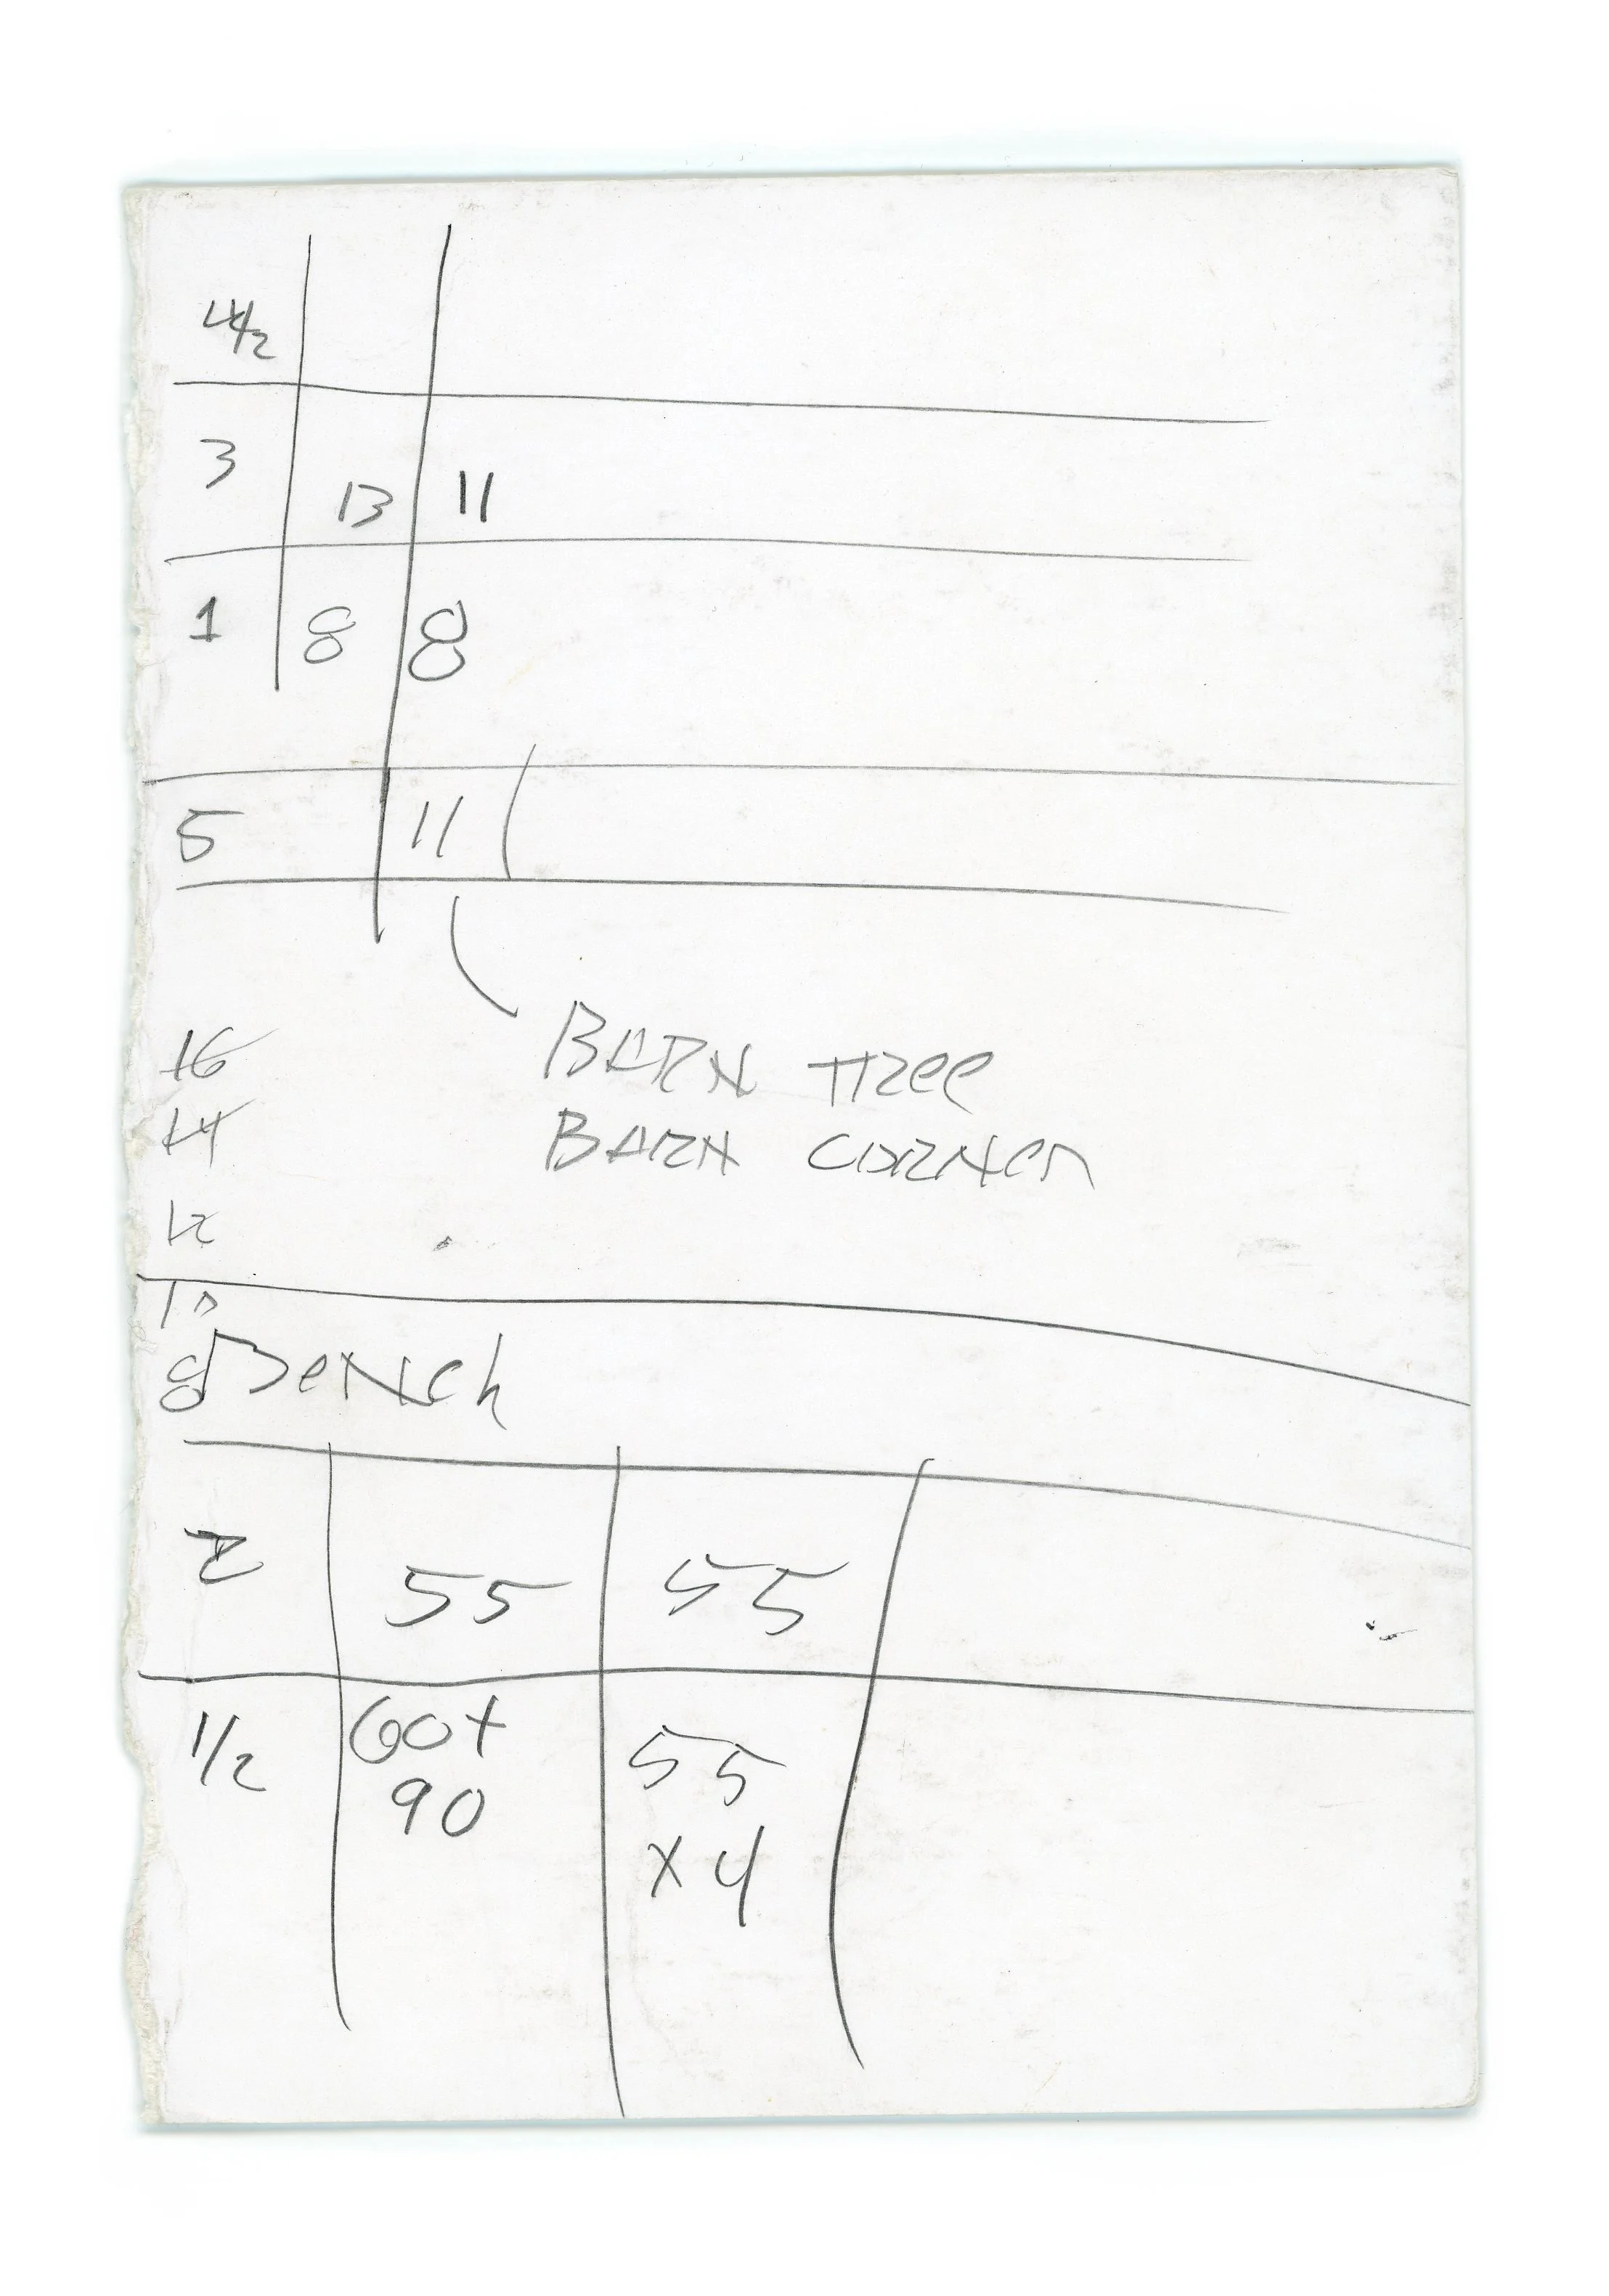 4 1/2
3 13 11
1 8 8
5 11
16 BARN Tree
14 BARN CORNer
12
10
8 Bench
2 55 55
1/2 60+ 55
90 x 4